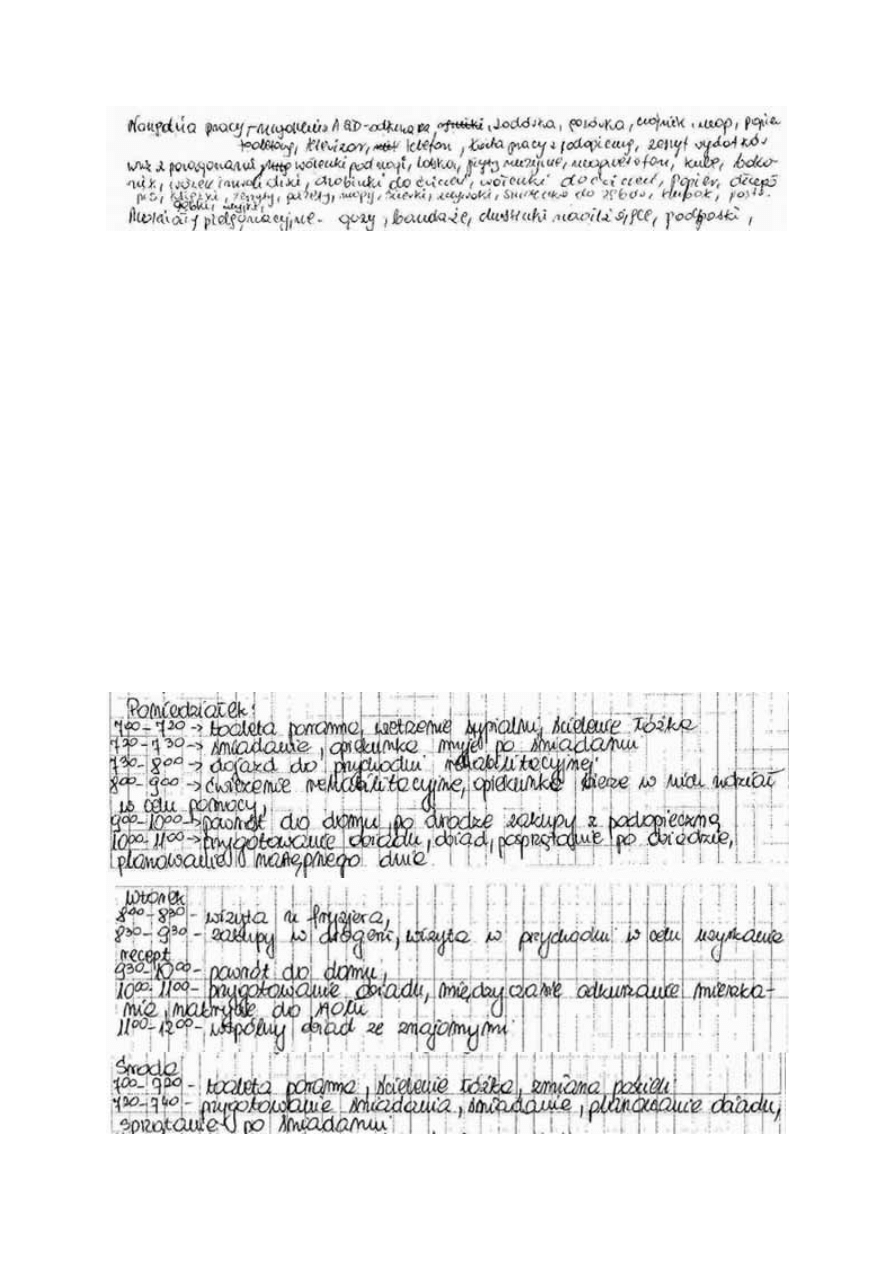 Narzędzia pracy - urządzenia AGD - odkurzacz, lodówka, czajnik, mop, papier
toaletowy, telewizor, telefon, karta pracy z podopieczną, zeszyt wydatków
wraz z paragonami, woreczki pod nogi, laska, płyty muzyczne, magnetofon, kule, balko-
nik, wózek inwalidzki, woreczki do ćwiczeń, papier, długo-
pis, książki, zeszyty, gazety, mopy, ścierki,
gąbki,
Materiały pielęgnacyjne - gazy, bandaże, chusteczki nawilżające, podpaski,
Poniedziałek:
7⁰⁰-7²⁰ → toaleta poranna, wietrzenie sypialni, ścielenie łóżka
7²⁰-7³⁰ → śniadanie, opiekunka myje po śniadaniu
7³⁰-8⁰⁰ → dojazd do przychodni rehabilitacyjnej
8⁰⁰-9⁰⁰ → ćwiczenie rehabilitacyjne, opiekunka bierze w nich udział
w celu pomocy,
9⁰⁰-10⁰⁰ → powrót do domu, po drodze zakupy z podopieczną
10⁰⁰-11⁰⁰ → przygotowanie obiadu, obiad, posprzątanie po obiedzie,
planowanie następnego dnia
Wtorek
8⁰⁰-8³⁰ - wizyta u fryzjera,
8³⁰-9³⁰ - zakupy w drogerii, wizyta w przychodni w celu uzyskania
recept
9³⁰-10⁰⁰ - powrót do domu,
10⁰⁰-11⁰⁰ - przygotowanie obiadu, międzyczasie odkurzanie mieszka-
nia, nakrycie do stołu
11⁰⁰-12⁰⁰ - wspólny obiad ze znajomymi
Środa
7⁰⁰-7²⁰ - toaleta poranna, ścielenie łóżka, zmiana pościeli
7²⁰-7⁴⁰ - przygotowanie śniadania, śniadanie, planowanie obiadu,
sprzątanie po śniadaniu